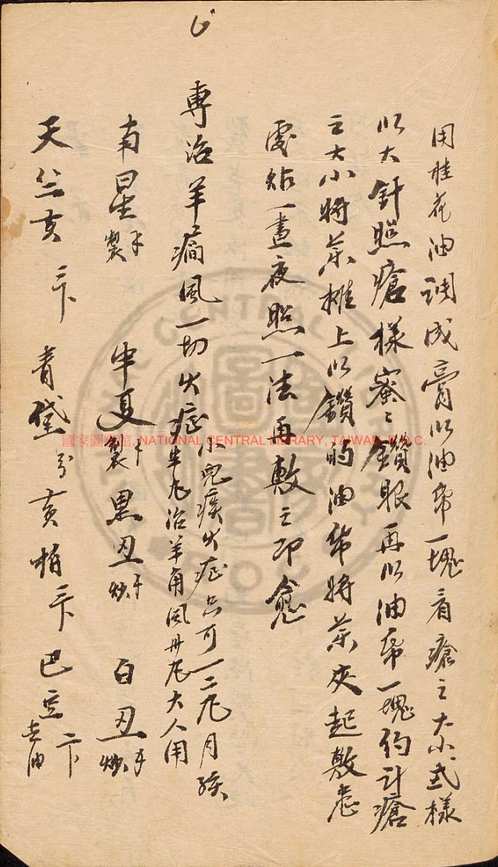 用桂花油調成膏以油帋一塊看瘡之大小式樣
以大針照瘡樣蜜々鑽眼再以油帋一塊約計瘡
之大小將茶攤上以鑽的油帋將茶夾起敷患
處貼一晝夜照一法再敷之即愈
專治羊癎風一切火症小兒痰火症只可一二兀月孩
半兀治羊角風卅兀大人用
南星製 中夏製 黑丑炒 白丑炒
天竺黃 三卞 青黛 黃柏 三卞 巴豆 一卞 去油
國家圖書館 NATIONAL CENTRAL LIBRARY, TAIWAN, R.O.C.